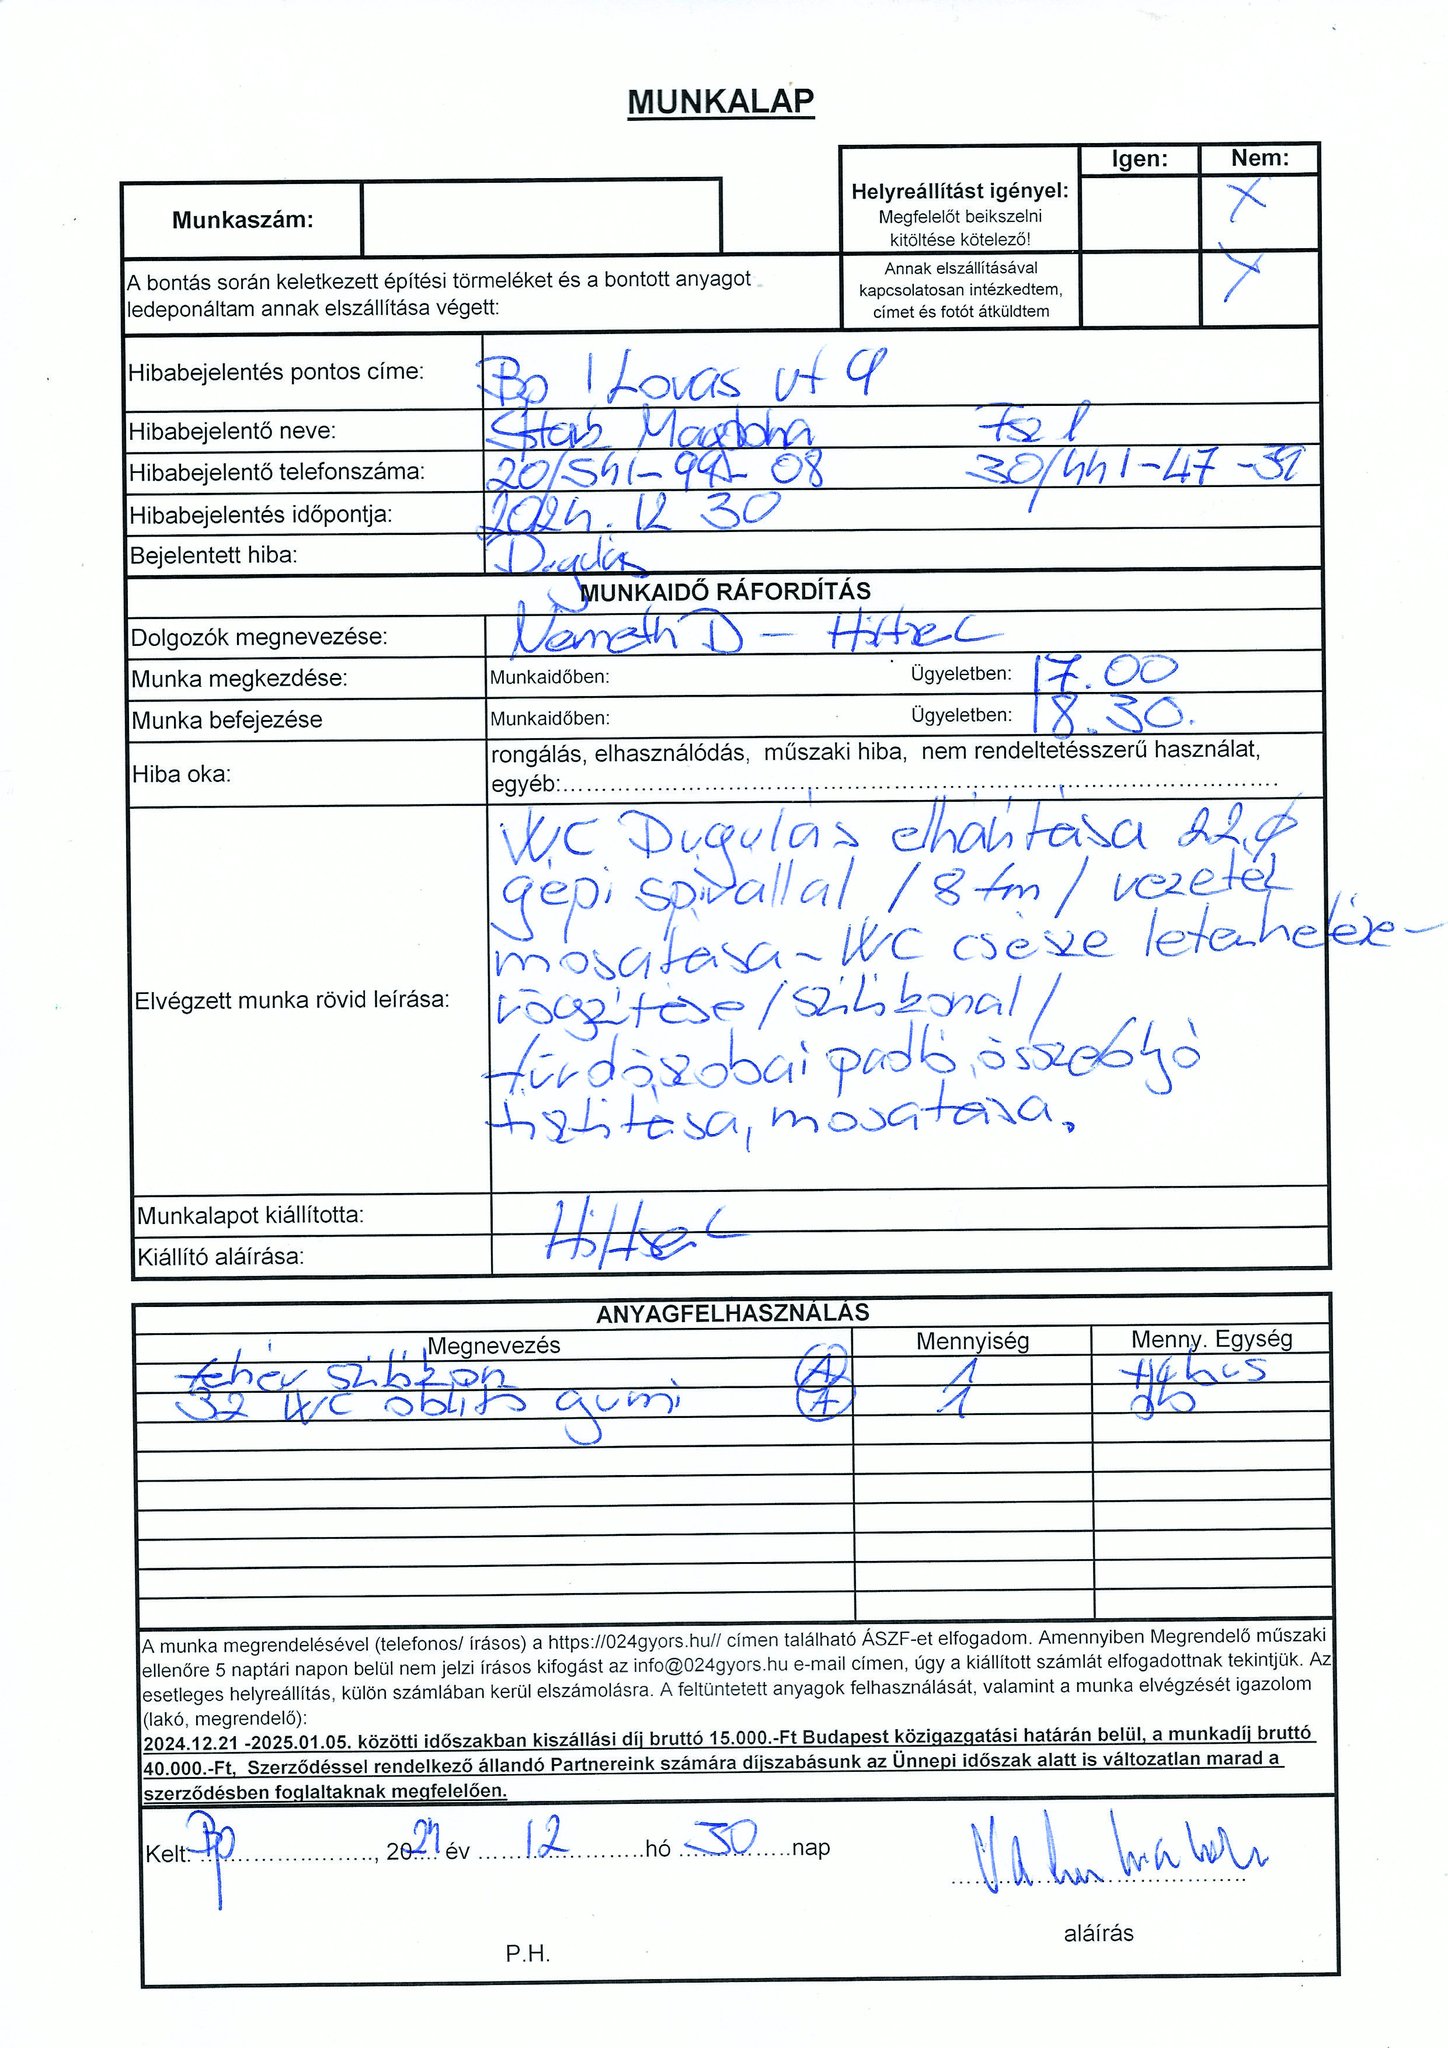 MUNKALAP
Igen: Nem:
Munkaszám:
Helyreállítást igényel:
Megfelelőt beikszelni
kitöltése kötelező!
X
A bontás során keletkezett építési törmeléket és a bontott anyagot
ledeponáltam annak elszállítása végett:
Annak elszállításával
kapcsolatosan intézkedtem,
címet és fotót átküldtem
X
Hibabejelentés pontos címe: Bp I Lovas út
Hibabejelentő neve: Fsz 1
Hibabejelentő telefonszáma: 30/441-47-
Hibabejelentés időpontja: 2024. 12 30
Bejelentett hiba: Dugulás
MUNKAIDŐ RÁFORDÍTÁS
Dolgozók megnevezése: Németh D -
Munka megkezdése: Munkaidőben: Ügyeletben: 17.00
Munka befejezése Munkaidőben: Ügyeletben: 18.30.
Hiba oka: rongálás, elhasználódás, műszaki hiba, nem rendeltetésszerű használat,
egyéb:
Elvégzett munka rövid leírása:
WC Dugulás elhárítása 22 ø
gépi spirállal /8 fm/ vezeték
mosatása - WC csésze
rögzítése /szilikonal/
fürdőszobai padló összefolyó
tisztítása, mosatása.
Munkalapot kiállította:
Kiállító aláírása:
ANYAGFELHASZNÁLÁS
Megnevezés Mennyiség Menny. Egység
fehér szilikon 1 tubus
32 WC öblítő gumi A 1 db
A munka megrendelésével (telefonos/ írásos) a https://024gyors.hu// címen található ÁSZF-et elfogadom. Amennyiben Megrendelő műszaki
ellenőre 5 naptári napon belül nem jelzi írásos kifogást az info@024gyors.hu e-mail címen, úgy a kiállított számlát elfogadottnak tekintjük. Az
esetleges helyreállítás, külön számlában kerül elszámolásra. A feltüntetett anyagok felhasználását, valamint a munka elvégzését igazolom
(lakó, megrendelő):
2024.12.21 -2025.01.05. közötti időszakban kiszállási díj bruttó 15.000.-Ft Budapest közigazgatási határán belül, a munkadíj bruttó
40.000.-Ft, Szerződéssel rendelkező állandó Partnereink számára díjszabásunk az Ünnepi időszak alatt is változatlan marad a
szerződésben foglaltaknak megfelelően.
Kelt: Bp, 2024 év 12 hó 30 nap
aláírás
P.H.